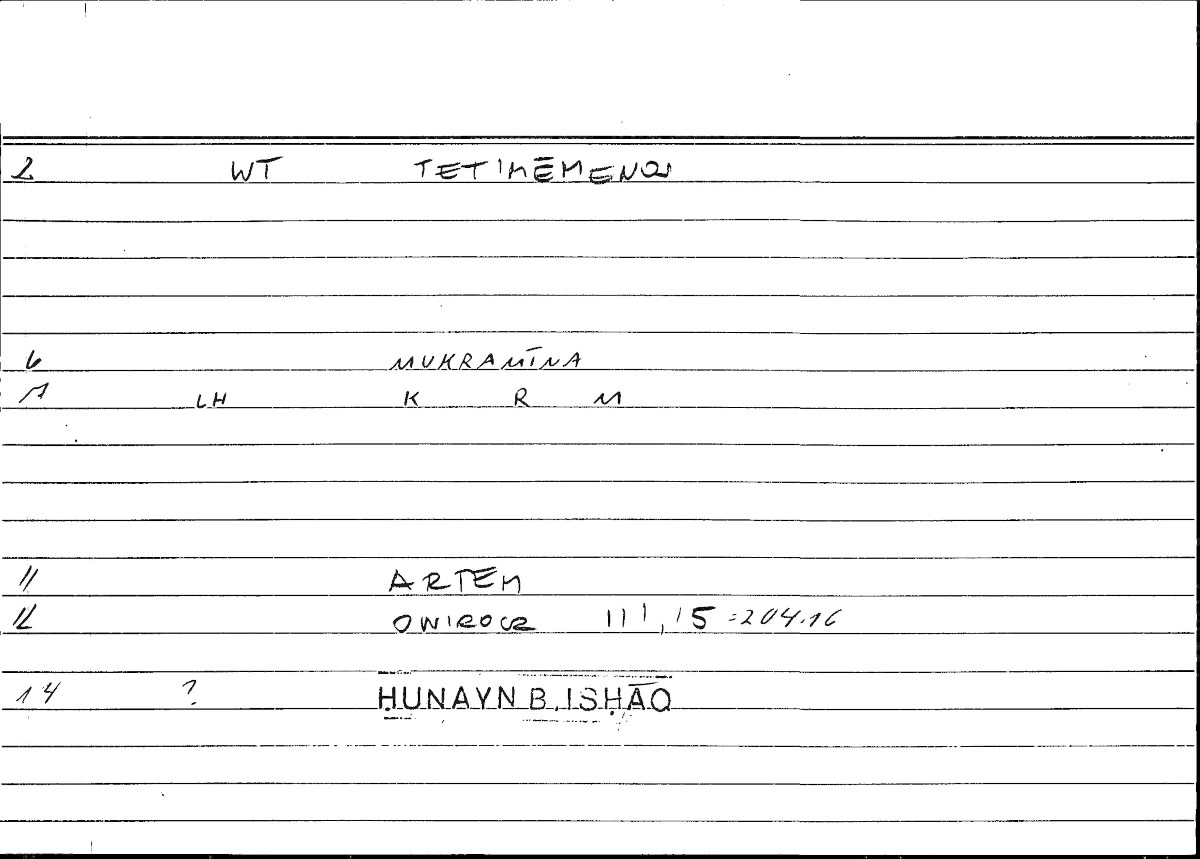 2 WT TETIMĒMENOI
6 MUKRAMĪNA
7 LH K R M
11 ARTEM
12 ONIROCR III, 15 = 204.16
14 ? ḤUNAYN B. ISḤĀQ